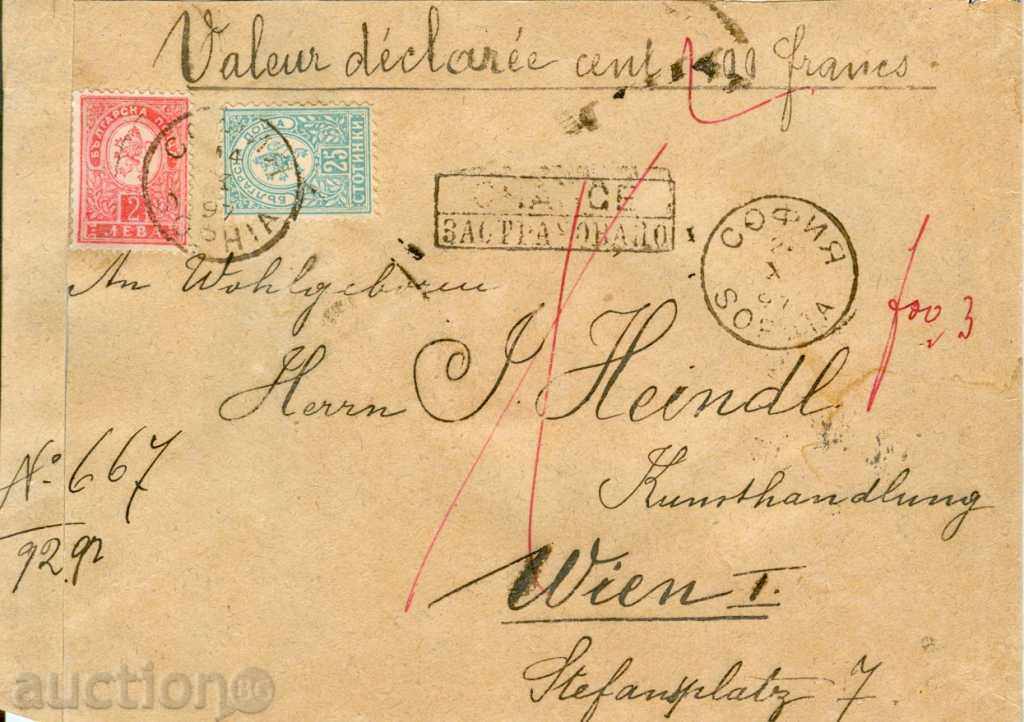 Valeur déclarée cent 100 francs
БЪЛГАРСКА
2
ЛЕВА
БЪЛГАРСКА ПОЩА
25
СТОТИНКИ
CHARGE
ЗАСТРАХОВАНО
СОФИЯ
X
SOPHIA
An Wohlgeboren
Herrn J. Heindl
Kunsthandlung
Wien I.
Stefansplatz 7
No. 667
92 gr
3
auction BG